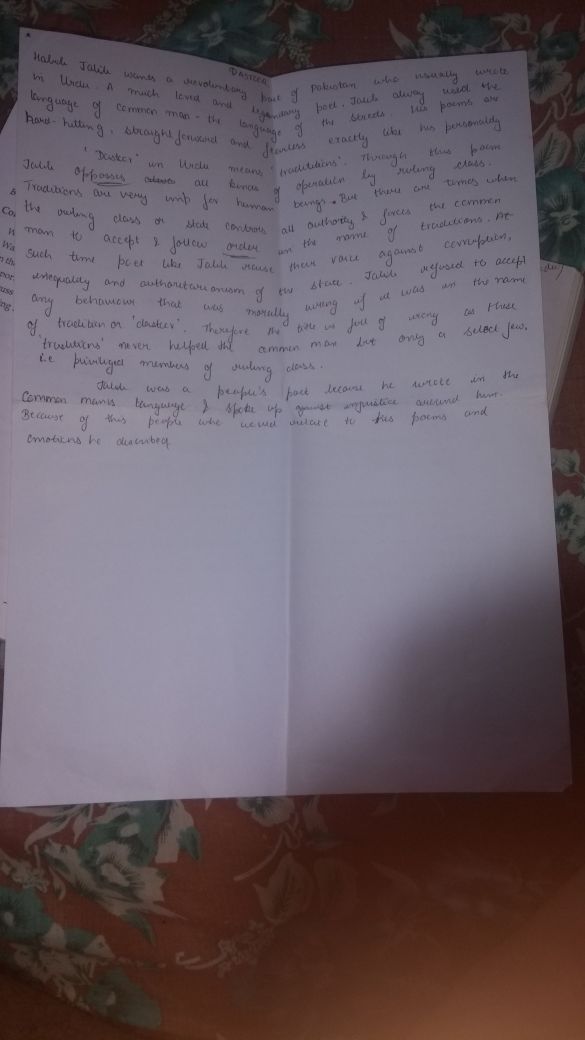 DASTOOR
Habib Jalib wants a revolutionary poet of Pakistan who usually wrote
in Urdu. A much loved and legendary poet. Jalib alway used the
language of common man - the language of the streets. His poems are
hard-hitting, straightforward and fearless exactly like his personality
'Dastoor' in Urdu means, 'traditions'. Through this poem
Jalib opposes all kinds of operation by ruling class.
Traditions are very imp for human beings. But there are times when
the ruling class or state controls all authority & forces the common
man to accept & follow order in the name of traditions. At
such time poet like Jalib raise their voice against corruption,
inequality and authoritarianism of the state. Jalib refused to accept
any behaviour that was morally wrong if it was in the name
of tradition or 'dastoor'. Therefore the title is full of wrong as these
'traditions' never helped the common man but only a select few.
i.e privileged members of ruling class.
Jalib was a people's poet because he wrote in the
Common man's language & spoke up against injustice around him.
Because of this people who would relate to his poems and
emotions he described